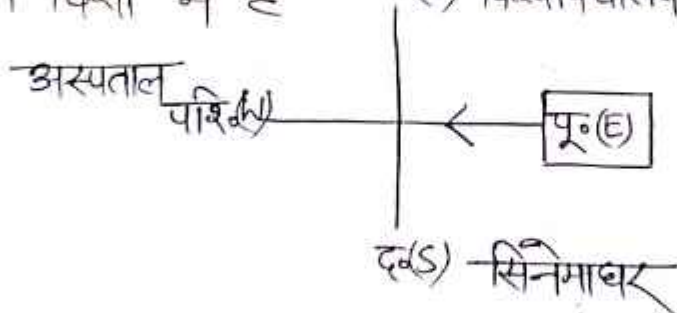 दिशा में है
अस्पताल
पश्चि.(W)
पू॰(E)
द॰(S) सिनेमाघर